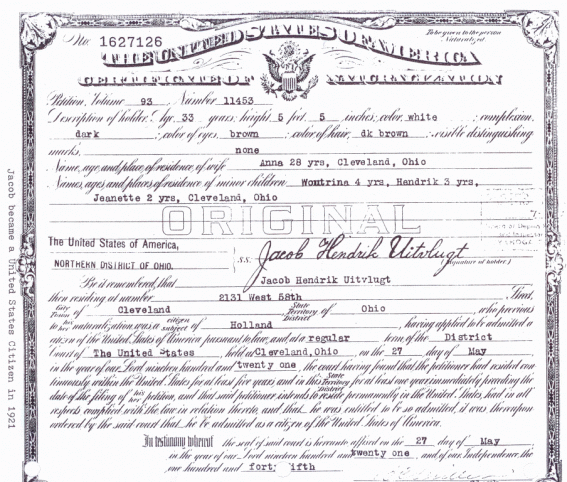 No. 1627126
To be given to the person Naturalized.
THE UNITED STATES OF AMERICA
CERTIFICATE OF NATURALIZATION
Petition, Volume 93 , Number 11453
Description of holder: Age, 33 years; height, 5 feet, 5 inches; color, white ; complexion,
dark ; color of eyes, brown ; color of hair, dk brown ; visible distinguishing
marks, none
Name, age and place of residence of wife Anna 28 yrs, Cleveland, Ohio
Names, ages and places of residence of minor children Woutrina 4 yrs, Hendrik 3 yrs,
Jeanette 2 yrs, Cleveland, Ohio
ORIGINAL
The United States of America,
NORTHERN DISTRICT OF OHIO.
S.S.
Jacob Hendrik Uitvlugt
(Signature of holder)
Be it remembered, that Jacob Hendrik Uitvlugt
then residing at number 2131 West 58th Street,
City Town of Cleveland State Territory District of Ohio , who previous
to his her naturalization was a citizen subject of Holland , having applied to be admitted a
citizen of the United States of America pursuant to law, and at a regular term of the District
Court of The United States held at Cleveland, Ohio on the 27 day of May
in the year of our Lord nineteen hundred and twenty one the court having found that the petitioner had resided con-
tinuously within the United States for at least five years and in this State Territory District for at least one year immediately preceding the
date of the filing of his her petition, and that said petitioner intends to reside permanently in the United States, had in all
respects complied with the law in relation thereto, and that he was entitled to be so admitted, it was thereupon
ordered by the said court that he be admitted as a citizen of the United States of America.
In testimony whereof the seal of said court is hereunto affixed on the 27 day of May
in the year of our Lord nineteen hundred and twenty one , and of our Independence the
one hundred and fort ifth
Jacob became a United States Citizen in 1921